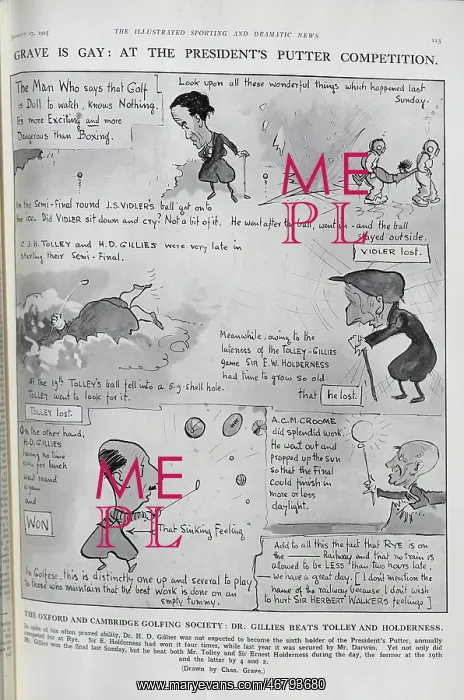 January 17, 1925
THE ILLUSTRATED SPORTING AND DRAMATIC NEWS
123
GRAVE IS GAY: AT THE PRESIDENT'S PUTTER COMPETITION.
The Man Who says that Golf
is Dull to watch, knows Nothing.
It's more Exciting and more
Dangerous than Boxing.
Look upon all these wonderful things which happened last
Sunday.
In the Semi-Final round J.S. VIDLER'S ball got onto
the ice. Did VIDLER sit down and cry? Not a bit of it. He went after the ball, went in - and the ball
stayed outside.
VIDLER lost.
C.J.H. TOLLEY and H.D. GILLIES were very late in
starting their Semi-Final.
At the 19th TOLLEY'S ball fell into a 5.9 shell hole.
TOLLEY went to look for it.
TOLLEY lost.
Meanwhile, owing to the
lateness of the TOLLEY-GILLIES
game SIR E.W. HOLDERNESS
had time to grow so old
that he lost.
On the other hand,
H.D. GILLIES
having no time
even for lunch
went round
again
and
WON
"That Sinking Feeling"
In Golfese, this is distinctly one up and several to play
to those who maintain that the best work is done on an
empty tummy.
A.C.M. CROOME
did splendid work.
He went out and
propped up the Sun
so that the Final
Could finish in
more or less
daylight.
Add to all this the fact that RYE is on
the Railway and that no train is
allowed to be LESS than two hours late,
we have a great day. [I don't mention the
name of the railway because I don't wish
to hurt SIR HERBERT WALKER'S feelings]
THE OXFORD AND CAMBRIDGE GOLFING SOCIETY: DR. GILLIES BEATS TOLLEY AND HOLDERNESS.
In spite of his often proved ability, Dr. H. D. Gillies was not expected to become the sixth holder of the President's Putter, annually
competed for at Rye. Sir E. Holderness had won it four times, while last year it was secured by Mr. Darwin. Yet not only did
Mr. Gillies win the final last Sunday, but he beat both Mr. Tolley and Sir Ernest Holderness during the day, the former at the 19th
and the latter by 4 and 2.
(Drawn by Chas. Grave.)
ME
PL
ME
PL
www.maryevans.com/46793680